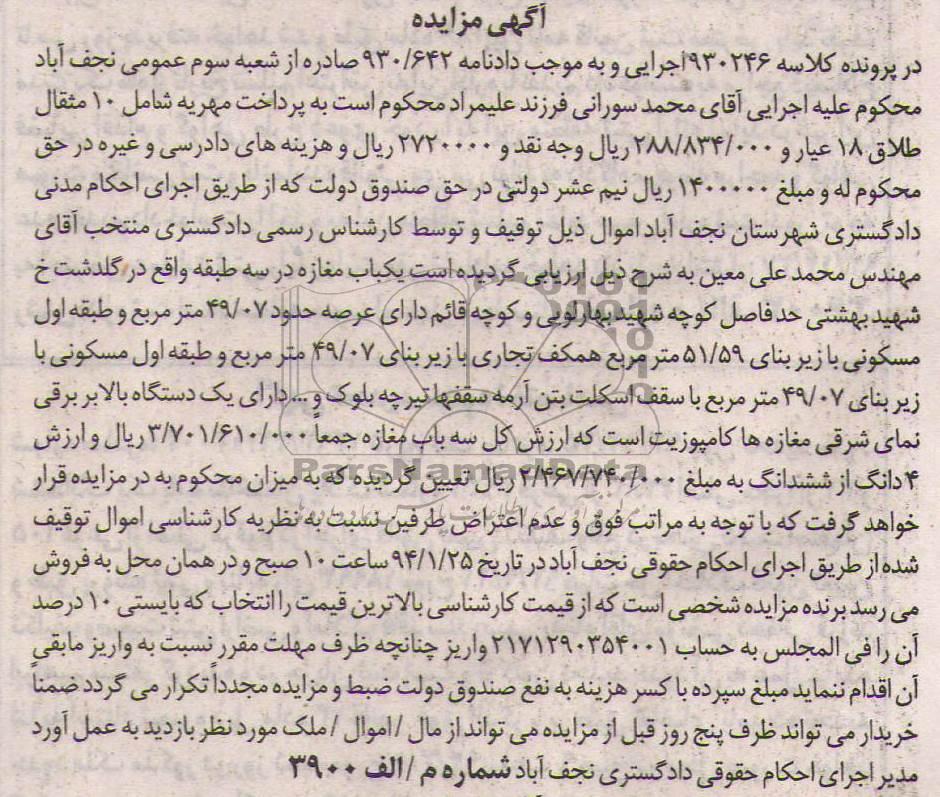 آگهی مزایده
در پرونده کلاسه ۹۳۰۲۴۶اجرایی و به موجب دادنامه ۹۳۰/۶۴۲ صادره از شعبه سوم عمومی نجف آباد
محکوم علیه اجرایی آقای محمد سورانی فرزند علیمراد محکوم است به پرداخت مهریه شامل ۱۰ مثقال
طلاق ۱۸ عیار و ۲۸۸/۸۳۴/۰۰۰ ریال وجه نقد و ۲۷۲۰۰۰۰ ریال و هزینه های دادرسی و غیره در حق
محکوم له و مبلغ ۱۴۰۰۰۰۰ ریال نیم عشر دولتی در حق صندوق دولت که از طریق اجرای احکام مدنی
دادگستری شهرستان نجف آباد اموال ذیل توقیف و توسط کارشناس رسمی دادگستری منتخب آقای
مهندس محمد علی معین به شرح ذیل ارزیابی گردیده است یکباب مغازه در سه طبقه واقع در گلدشت خ
شهید بهشتی حد فاصل کوچه شهید بهارلویی و کوچه قائم دارای عرصه حدود ۴۹/۰۷ متر مربع و طبقه اول
مسکونی با زیر بنای ۵۱/۵۹ متر مربع همکف تجاری با زیر بنای ۴۹/۰۷ متر مربع و طبقه اول مسکونی با
زیر بنای ۴۹/۰۷ متر مربع با سقف اسکلت بتن آرمه سقفها تیرچه بلوک و ... دارای یک دستگاه بالابر برقی
نمای شرقی مغازه ها کامپوزیت است که ارزش کل سه باب مغازه جمعاً ۳/۷۰۱/۶۱۰/۰۰۰ ریال و ارزش
۴ دانگ از ششدانگ به مبلغ ۲/۴۶۷/۷۴۰/۰۰۰ ریال تعیین گردیده که به میزان محکوم به در مزایده قرار
خواهد گرفت که با توجه به مراتب فوق و عدم اعتراض طرفین نسبت به نظریه کارشناسی اموال توقیف
شده از طریق اجرای احکام حقوقی نجف آباد در تاریخ ۹۴/۱/۲۵ ساعت ۱۰ صبح و در همان محل به فروش
می رسد برنده مزایده شخصی است که از قیمت کارشناسی بالاترین قیمت را انتخاب که بایستی ۱۰ درصد
آن را فی المجلس به حساب ۲۱۷۱۲۹۰۳۵۴۰۰۱ واریز چنانچه ظرف مهلت مقرر نسبت به واریز مابقی
آن اقدام ننماید مبلغ سپرده با کسر هزینه به نفع صندوق دولت ضبط و مزایده مجدداً تکرار می گردد ضمناً
خریدار می تواند ظرف پنج روز قبل از مزایده می تواند از مال / اموال / ملک مورد نظر بازدید به عمل آورد
مدیر اجرای احکام حقوقی دادگستری نجف آباد شماره م / الف ۳۹۰۰
ParsNamadData